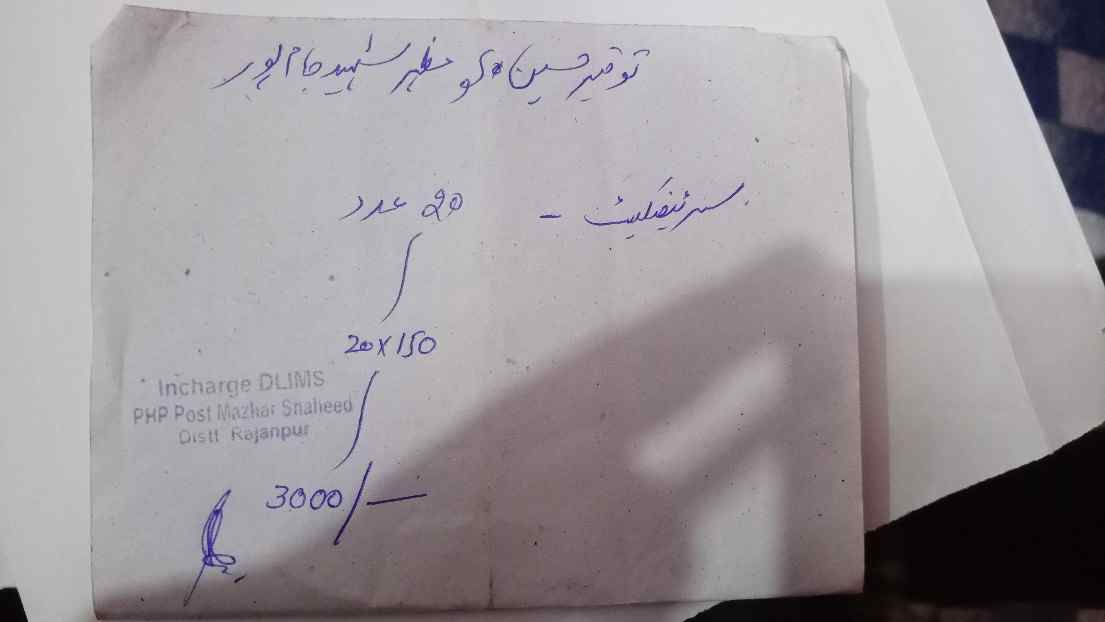 توقیر حسین مظہر شہید جام پور
سرٹیفکیٹ - 20 عدد
20x150
Incharge DLIMS
PHP Post Mazhar Shaheed
Distt Rajanpur
3000/—